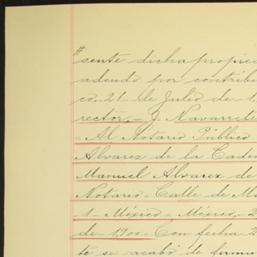 sente dicha propied
adeudo por contribu
co, 21 de Julio de 1
rector.- J. Navarrite
- Al Notario Público
Alvarez de la Caden
Manuel Alvarez de
Notario. Calle de M
1. México - México, 2
de 1900. Con fecha 2
te se acabó de firma